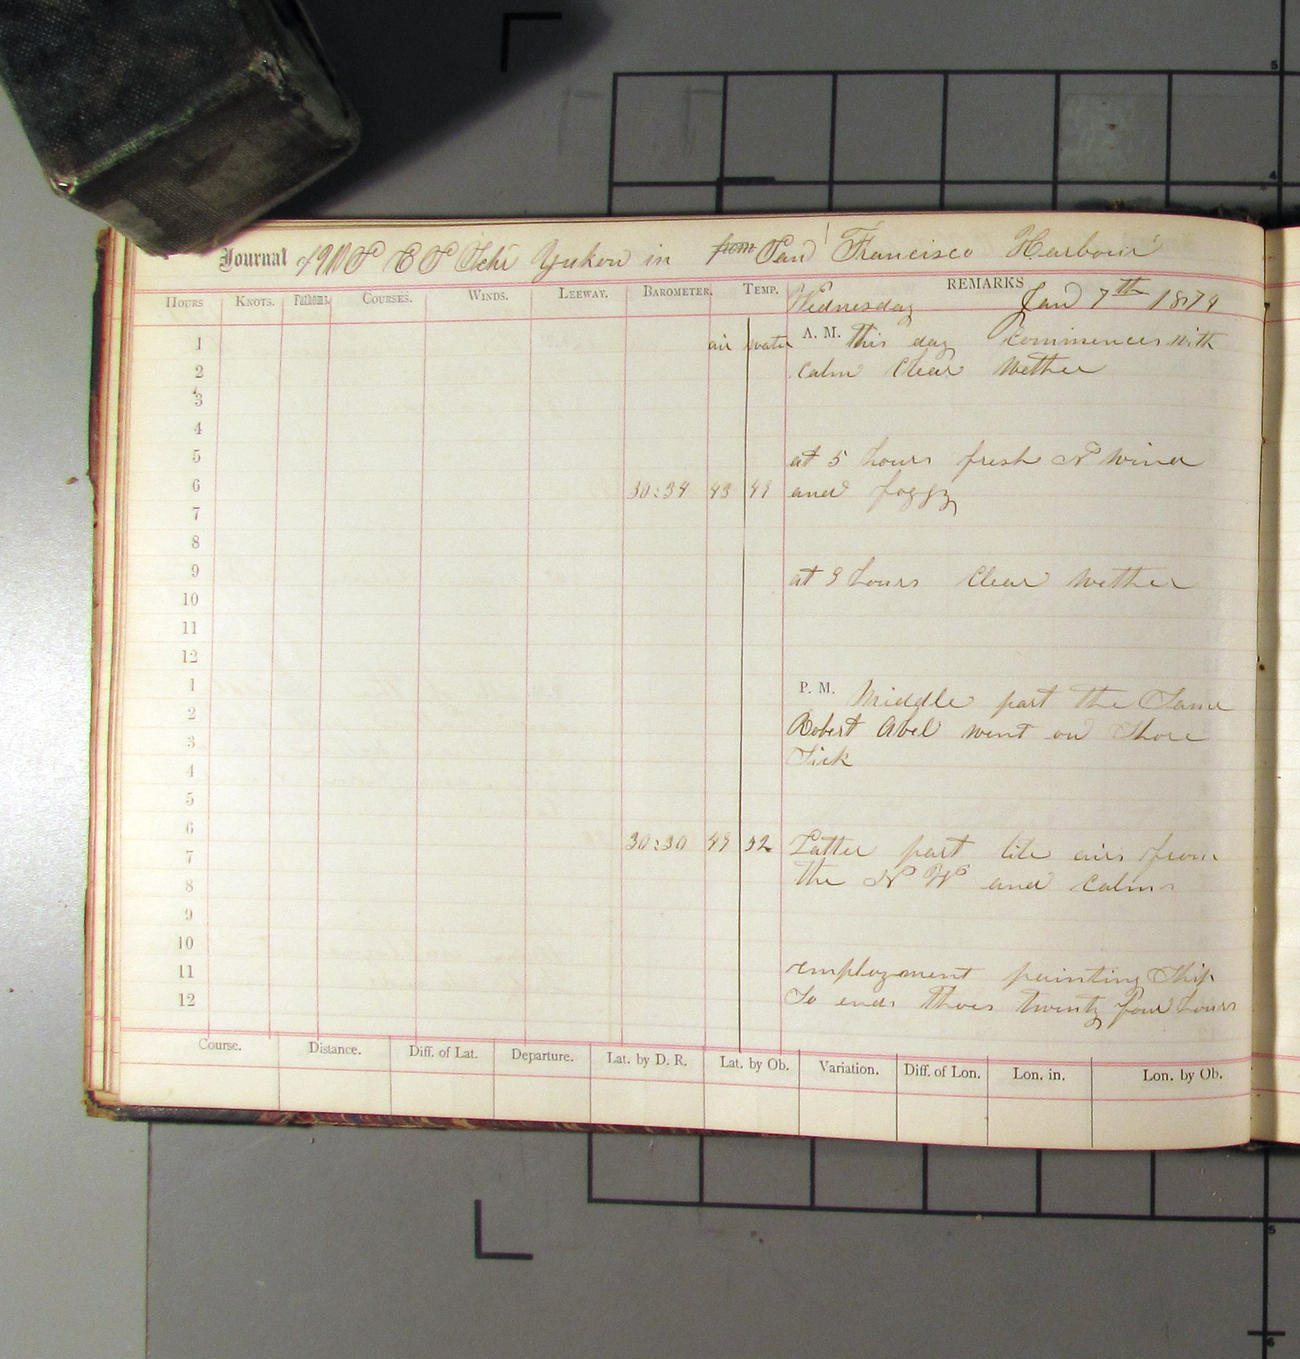 Journal of U S C S Schr Yukon in from San Francisco Harbour
HOURS KNOTS. Fathoms. COURSES. WINDS. LEEWAY. BAROMETER. TEMP. REMARKS
Wednesday Jan 7th 1874
1 air water A. M. this day Commences with
2 calm Clear Wether
3
4
5 at 5 hours fresh N wind
6 30:34 43 49 and foggy
7
8
9 at 9 hours Clear Wether
10
11
12
1 P. M. Middle part the Same
2 Robert Abel went on Shore
3 Sick
4
5
6 30:30 49 52 Latter part lite airs from
7 the N W and Calms
8
9
10
11 employment painting Ship
12 So ends thoes twenty four hours
Course. Distance. Diff. of Lat. Departure. Lat. by D. R. Lat. by Ob. Variation. Diff. of Lon. Lon. in. Lon. by Ob.
5
4
5
6